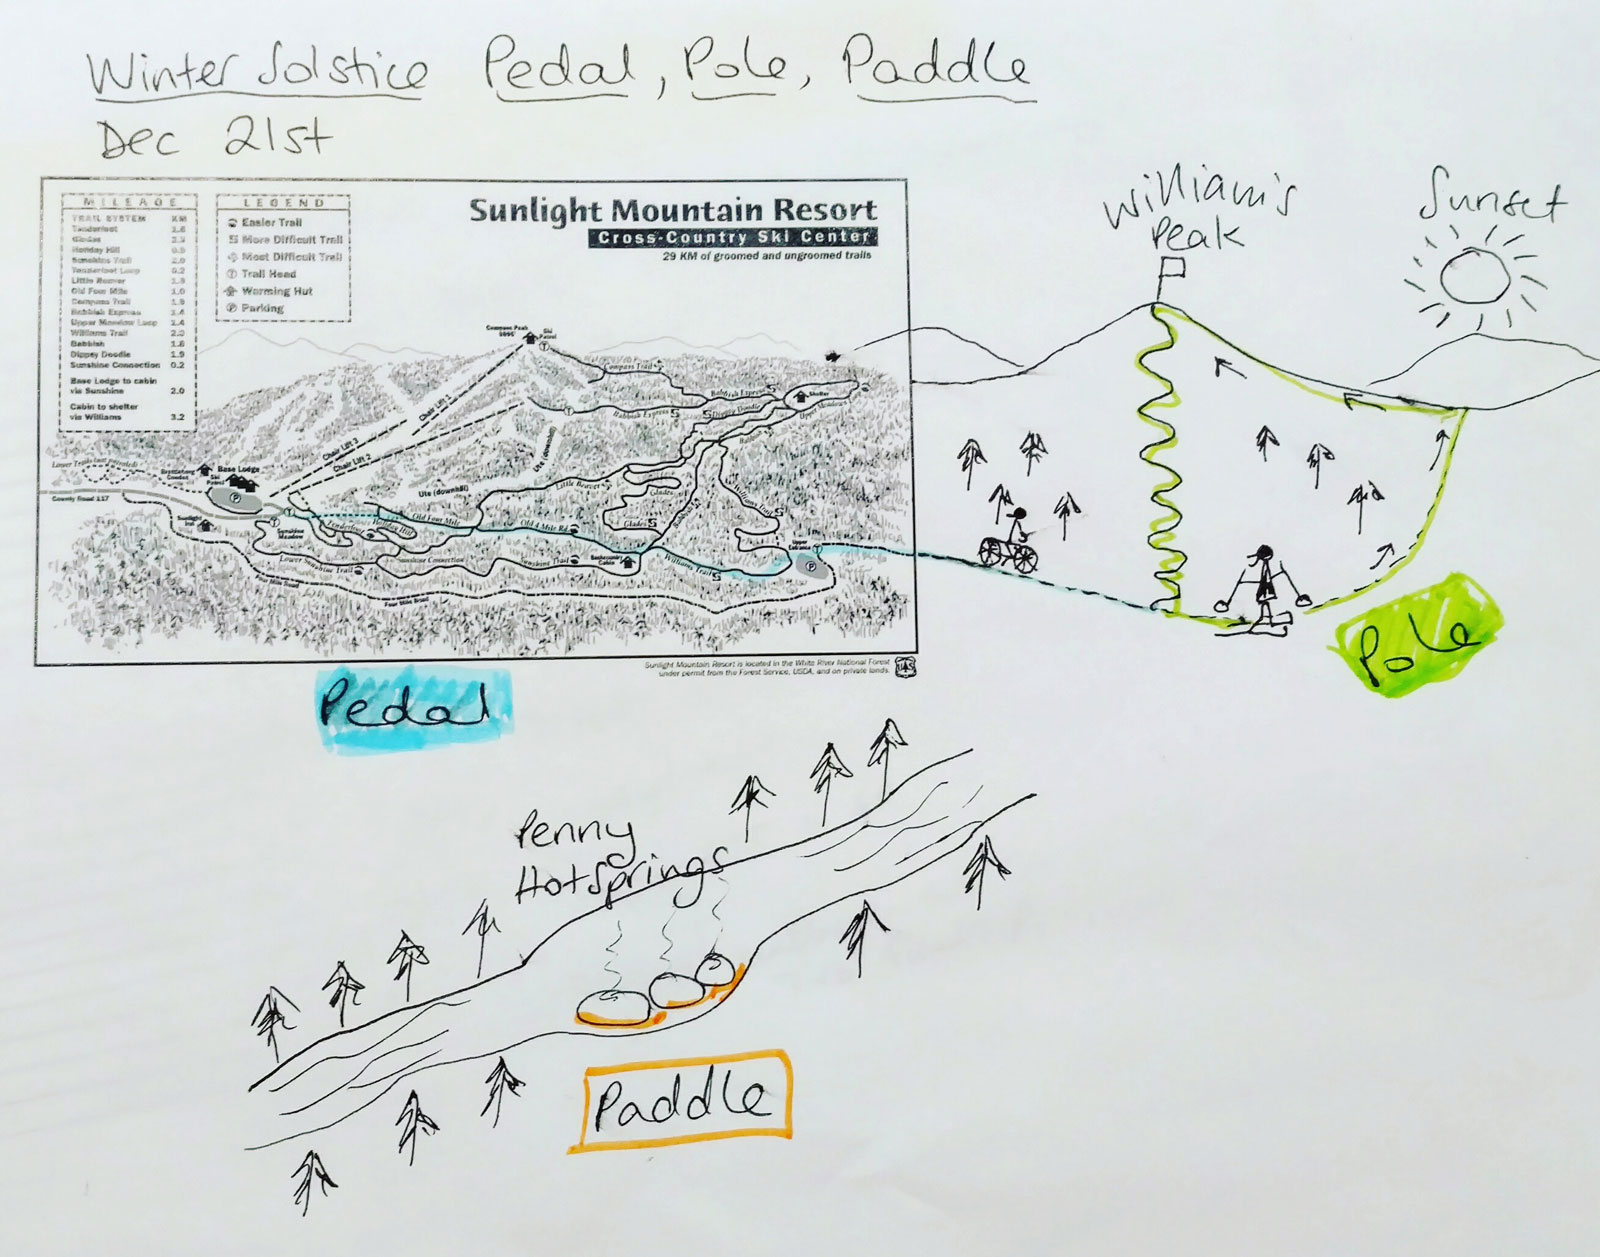 Winter Solstice Pedal, Pole, Paddle
Dec 21st
MILEAGE
TRAIL SYSTEM KM
Tenderfoot 1.8
Glades 2.3
Holiday Hill 0.5
Sunshine Trail 2.0
Tenderfoot Loop 0.2
Little Beaver 1.3
Old Four Mile 1.0
Compass Trail 1.9
Babbish Express 1.4
Upper Meadow Loop 1.4
Williams Trail 2.2
Babbish 1.8
Dippey Doodle 1.9
Sunshine Connection 0.2
Base Lodge to cabin
via Sunshine 2.0
Cabin to shelter
via Williams 3.2
LEGEND
Easier Trail
More Difficult Trail
Most Difficult Trail
Trail Head
Warming Hut
Parking
Sunlight Mountain Resort
Cross-Country Ski Center
29 KM of groomed and ungroomed trails
Compass Peak
Ski
Patrol
Compass Trail
Babbish Express
Babbish Express
Dippey Doodle
Shelter
Upper Meadows
Chair Lift 1
Chair Lift 3
Chair Lift 2
Ute (downhill)
Ute (downhill)
Base Lodge
Ski
Patrol
County Road 117
Little Beaver
Glades
Glades
Babbish
Williams Trail
Old Four Mile
Old 4 Mile Rd.
Tenderfoot
Holiday Hill
Sunshine
Meadow
Lower Sunshine Trail
Sunshine Connection
Sunshine Trail
Backcountry
Cabin
Williams Trail
Upper
Entrance
Four Mile Road
Four Mile Road
Sunlight Mountain Resort is located in the White River National Forest
under permit from the Forest Service, USDA, and on private lands.
William's
Peak
Sunset
Pedal
Pole
Penny
Hotsprings
Paddle